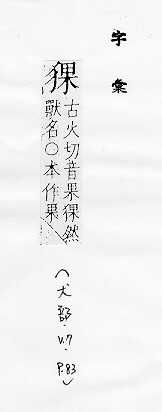 字彙
猓
古火切音果猓然
獸名○本作果
(犬部.V.7.P.83)